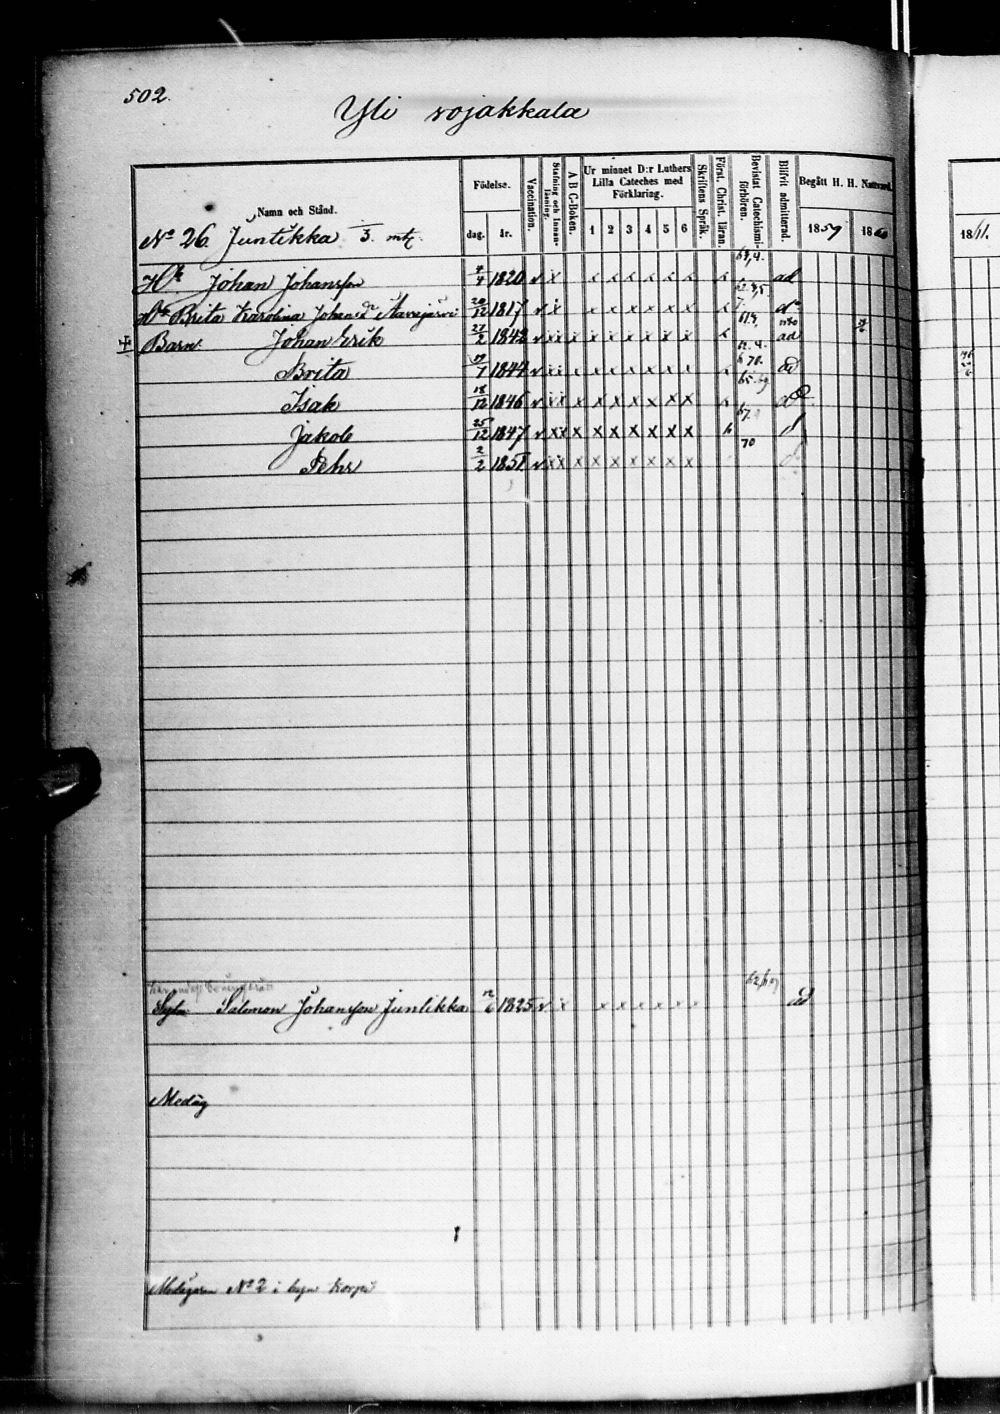 502.
Yli vojakkala
Namn och Stånd.
Födelse.
dag.
år.
Vaccination.
Stafning och Innanläsning.
A B C-Boken.
Ur minnet D:r Luthers Lilla Cateches med Förklaring.
1 2 3 4 5 6
Skriftens Språk.
Först. Christ. läran.
Bevistat Catechismiförhören.
Blifvit admitterad.
Begått H. H. Nattvard.
1859
1860
1861.
No 26. Juntikka 3. mtl.
Johan Johansson 4/4 1820 v x x x x x x x ad
Brita Karolina Johansd 20/12 1817 v x x x x x x x
Barn. Johan Erik 27/2 1842 v x x x x x x x x x ad
Brita 1844 v x x x x x x x x x
Isak 18/12 1846 v x x x x x x x x x
Jakob 25/12 1847 v x x x x x x x x x
Pehr 2/2 1851 v x x x x x x x x x
70
Salomon Johansson Juntikka 1825 v x x x x x x x ad
Medäg
Medägaren No 2 i byn Korpi